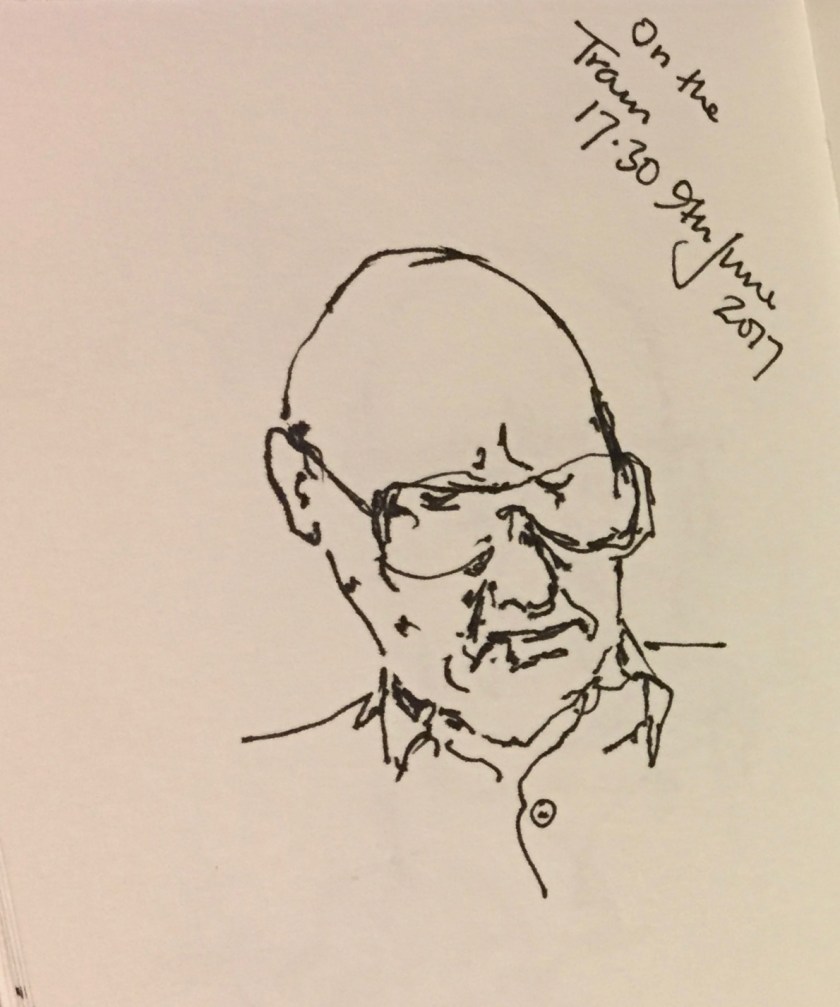 On the
Tram
17.30 9th June
2017